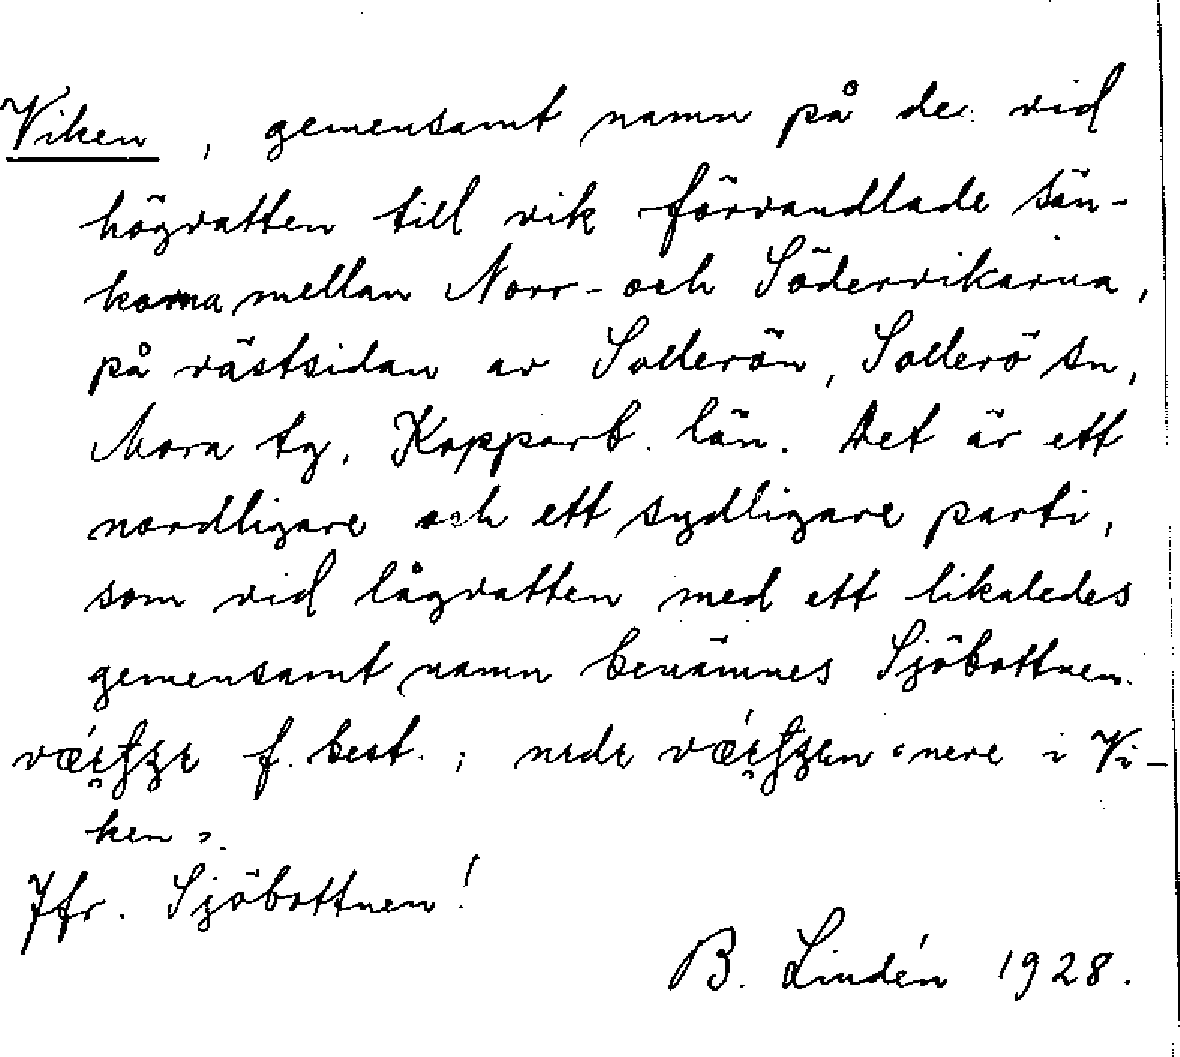 Viken, gemensamt namn på de vid
högvatten till vik förvandlade sän-
korna mellan Norr- och Södervikarna,
på västsidan av Sollerön, Sollerö sn,
Mora tg, Kopparb. län. Det är ett
nordligare och ett sydligare parti,
som vid lågvatten med ett likaledes
gemensamt namn benämnes Sjöbottnen.
f. best.; ‘nere i Vi-
ken’.
Jfr. Sjöbottnen!
B. Lindén 1928.